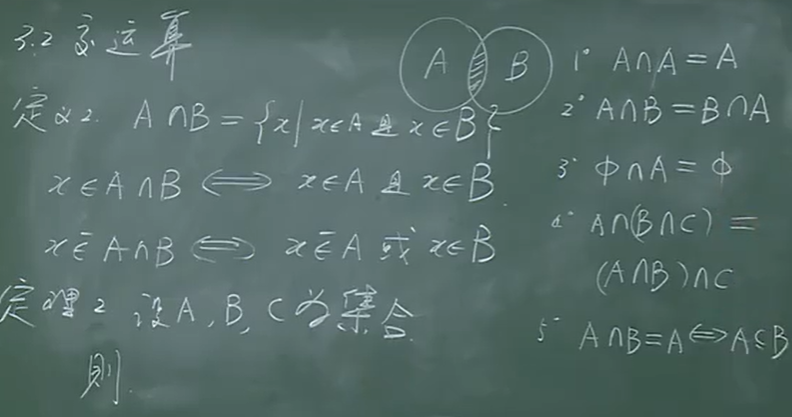 3.2 交运算
A B
定义2. A∩B={x|x∈A且x∈B}
x∈A∩B ⟺ x∈A且x∈B.
x∈̄A∩B ⟺ x∈̄A 或 x∈̄B
定理2 设A,B,C为集合.
则.
1° A∩A=A
2° A∩B=B∩A
3° ϕ∩A=ϕ
4° A∩(B∩C)=
(A∩B)∩C
5° A∩B=A⟺A⊆B